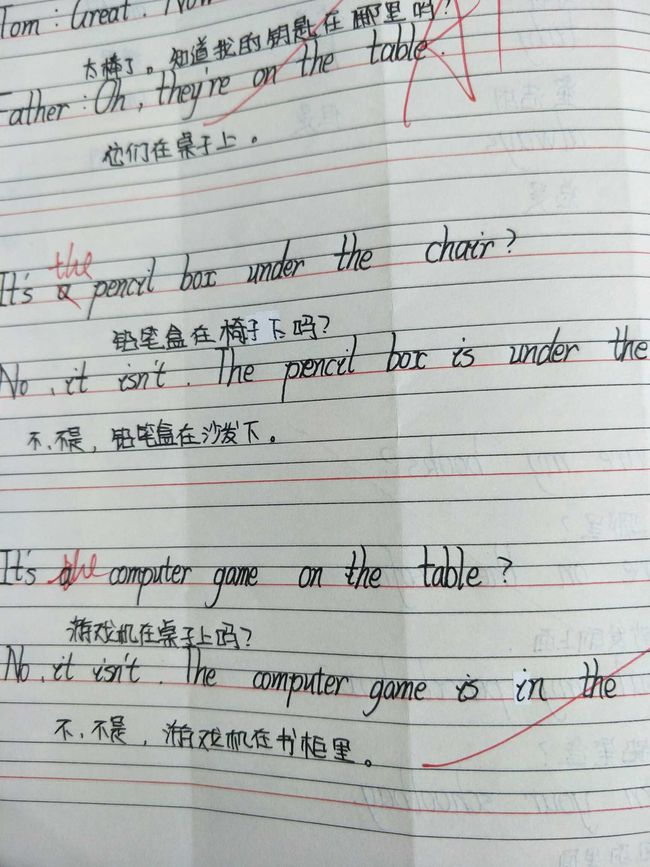 Tom : Great . Now
太棒了。知道我的钥匙在哪里吗?
Father : Oh, they're on the table.
他们在桌子上。
the
It's a pencil box under the chair?
铅笔盒在椅子下吗?
No, it isn't. The pencil box is under the
不,不是,铅笔盒在沙发下。
It's the computer game on the table?
游戏机在桌子上吗?
No, it isn't. The computer game is in the
不,不是,游戏机在书柜里。